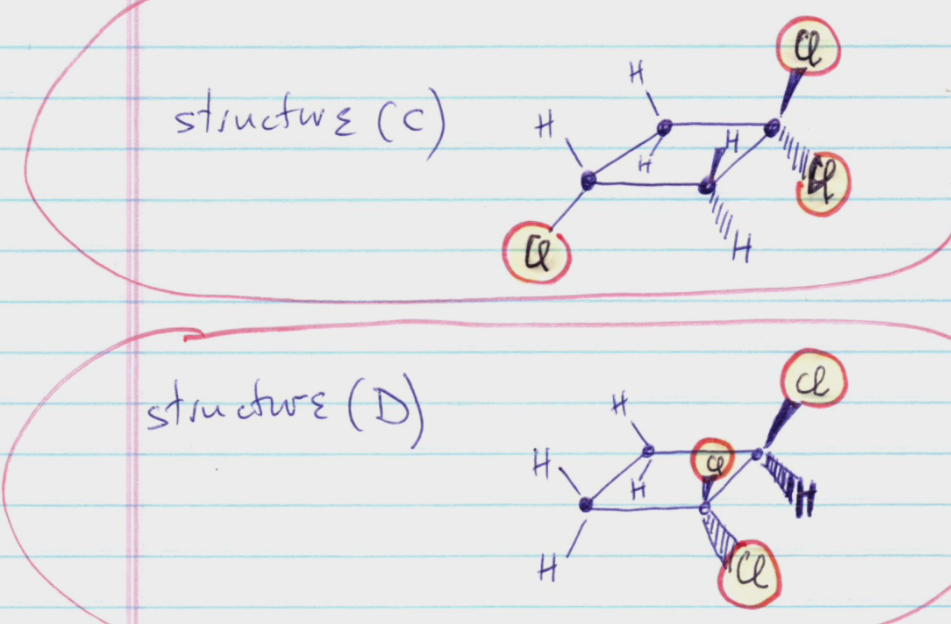 Cl
H
structure (C)
H
H
H
Cl
Cl
H
structure (D)
Cl
H
Cl
H
H
H
H
Cl